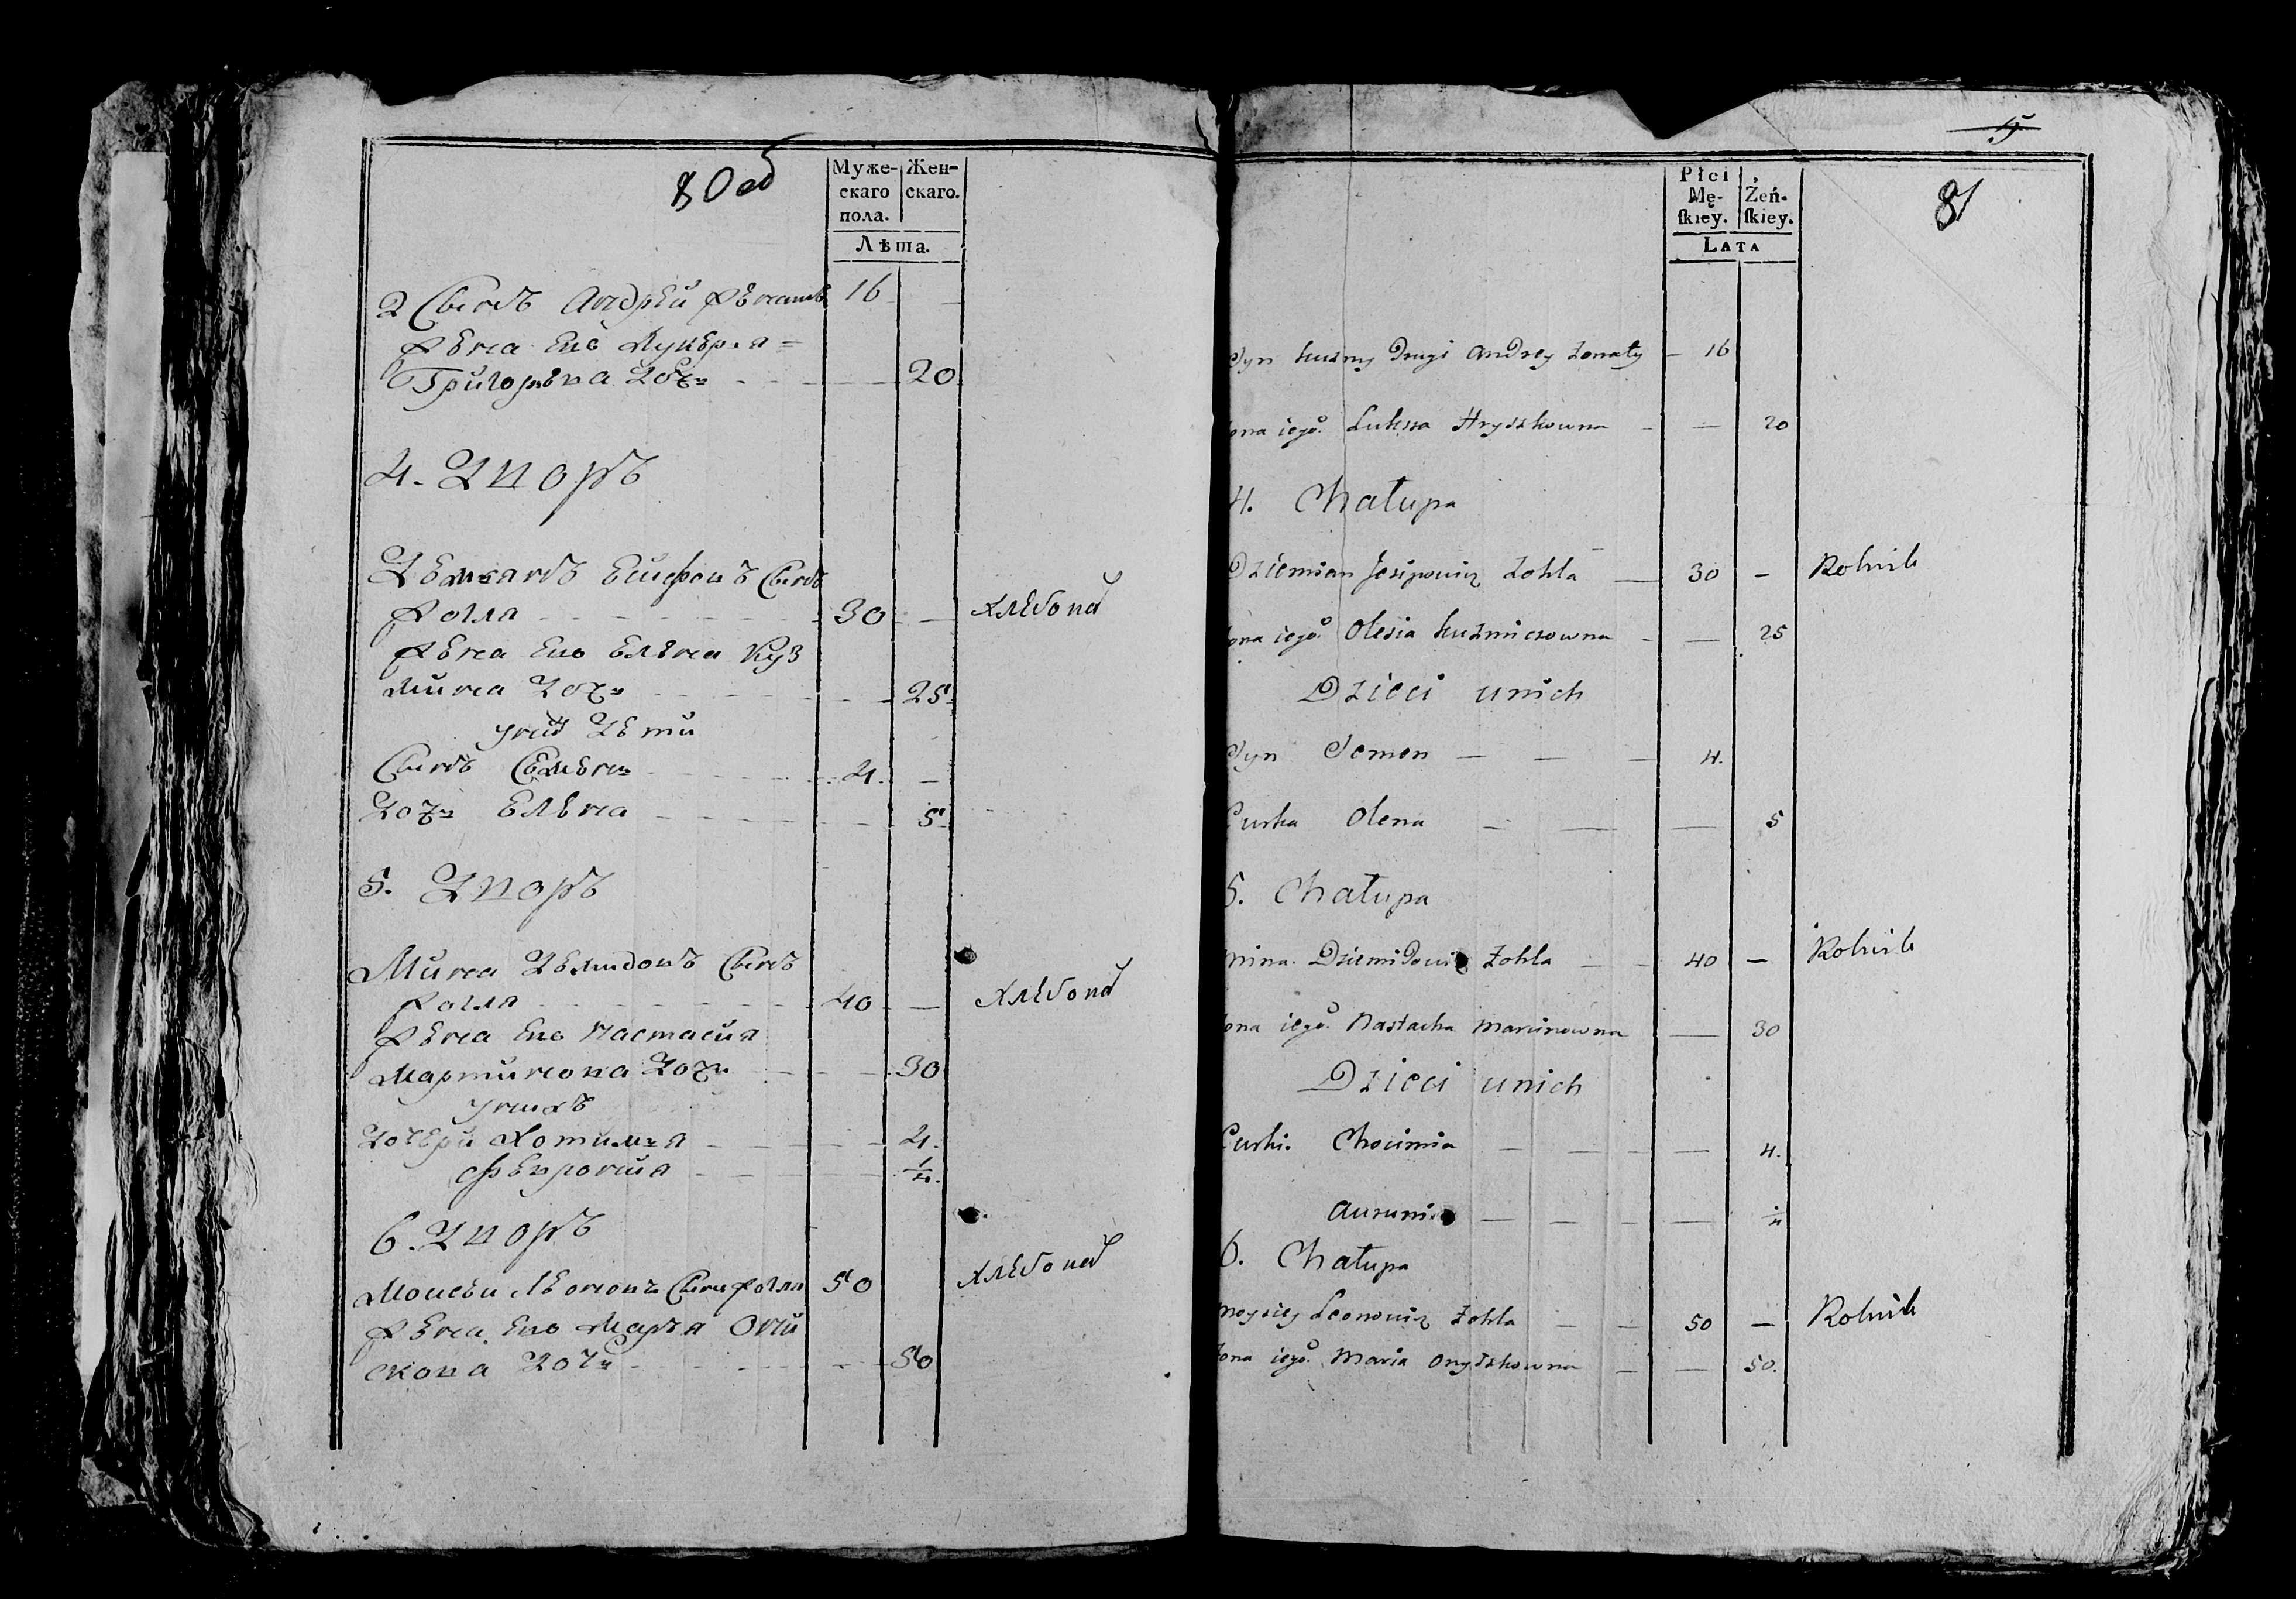 80 об
Муже-
скаго
пола.
Жен-
скаго.
Лѣта.
2 Сынъ Андрей женатъ 16 —
Жена Его Лукеръя =
Григорьева дочь — 20
4. Дворъ
Демьянъ Есиповъ Сынъ
Жогля 30 — хлѣбопа
Жена Его Елена Куз
мина дочь — 25
у них дети
Сынъ Семенъ 4. —
дочь Елена — 5
5. Дворъ
Мина Демидовъ Сынъ
Жогля 40 — хлѣбопа
Жена Его Настасия
Мартинова дочь — 30
у нихъ
дочери Хотимья — 4.
Феврония — 1/4.
6. Дворъ
Моисеи Леоновъ Сынъ Жогля 50 хлѣбопа
Жена Его Марья Они
скова дочь — 50
5
81
Płci
Mę-
ſkiey.
Żeń-
ſkiey.
LATA
Syn kuzmy Drugi Andrey żonaty — 16
żona iego. Luksza Hryszkowna — — 20
4. Chałupa
Dziemian Jesipowicz Żohla — 30 — Rolnik
żona iego. Olesia kuzmiczowna — — 25
Dzieci unich
Syn Semen — — — 4.
Curka Olena — — — 5
5. Chałupa
Mina Dziemidowicz Żohla — — 40 — Rolnik
żona iego. Nastazka Marcinowna — 30
Dzieci unich
Curki. Chocimia — — — — 4.
— — — — 1/4
6. Chałupa
Moysiey Leonowicz Żohla — — 50 — Rolnik
żona iego. Maria Onyszkowna — — 50.